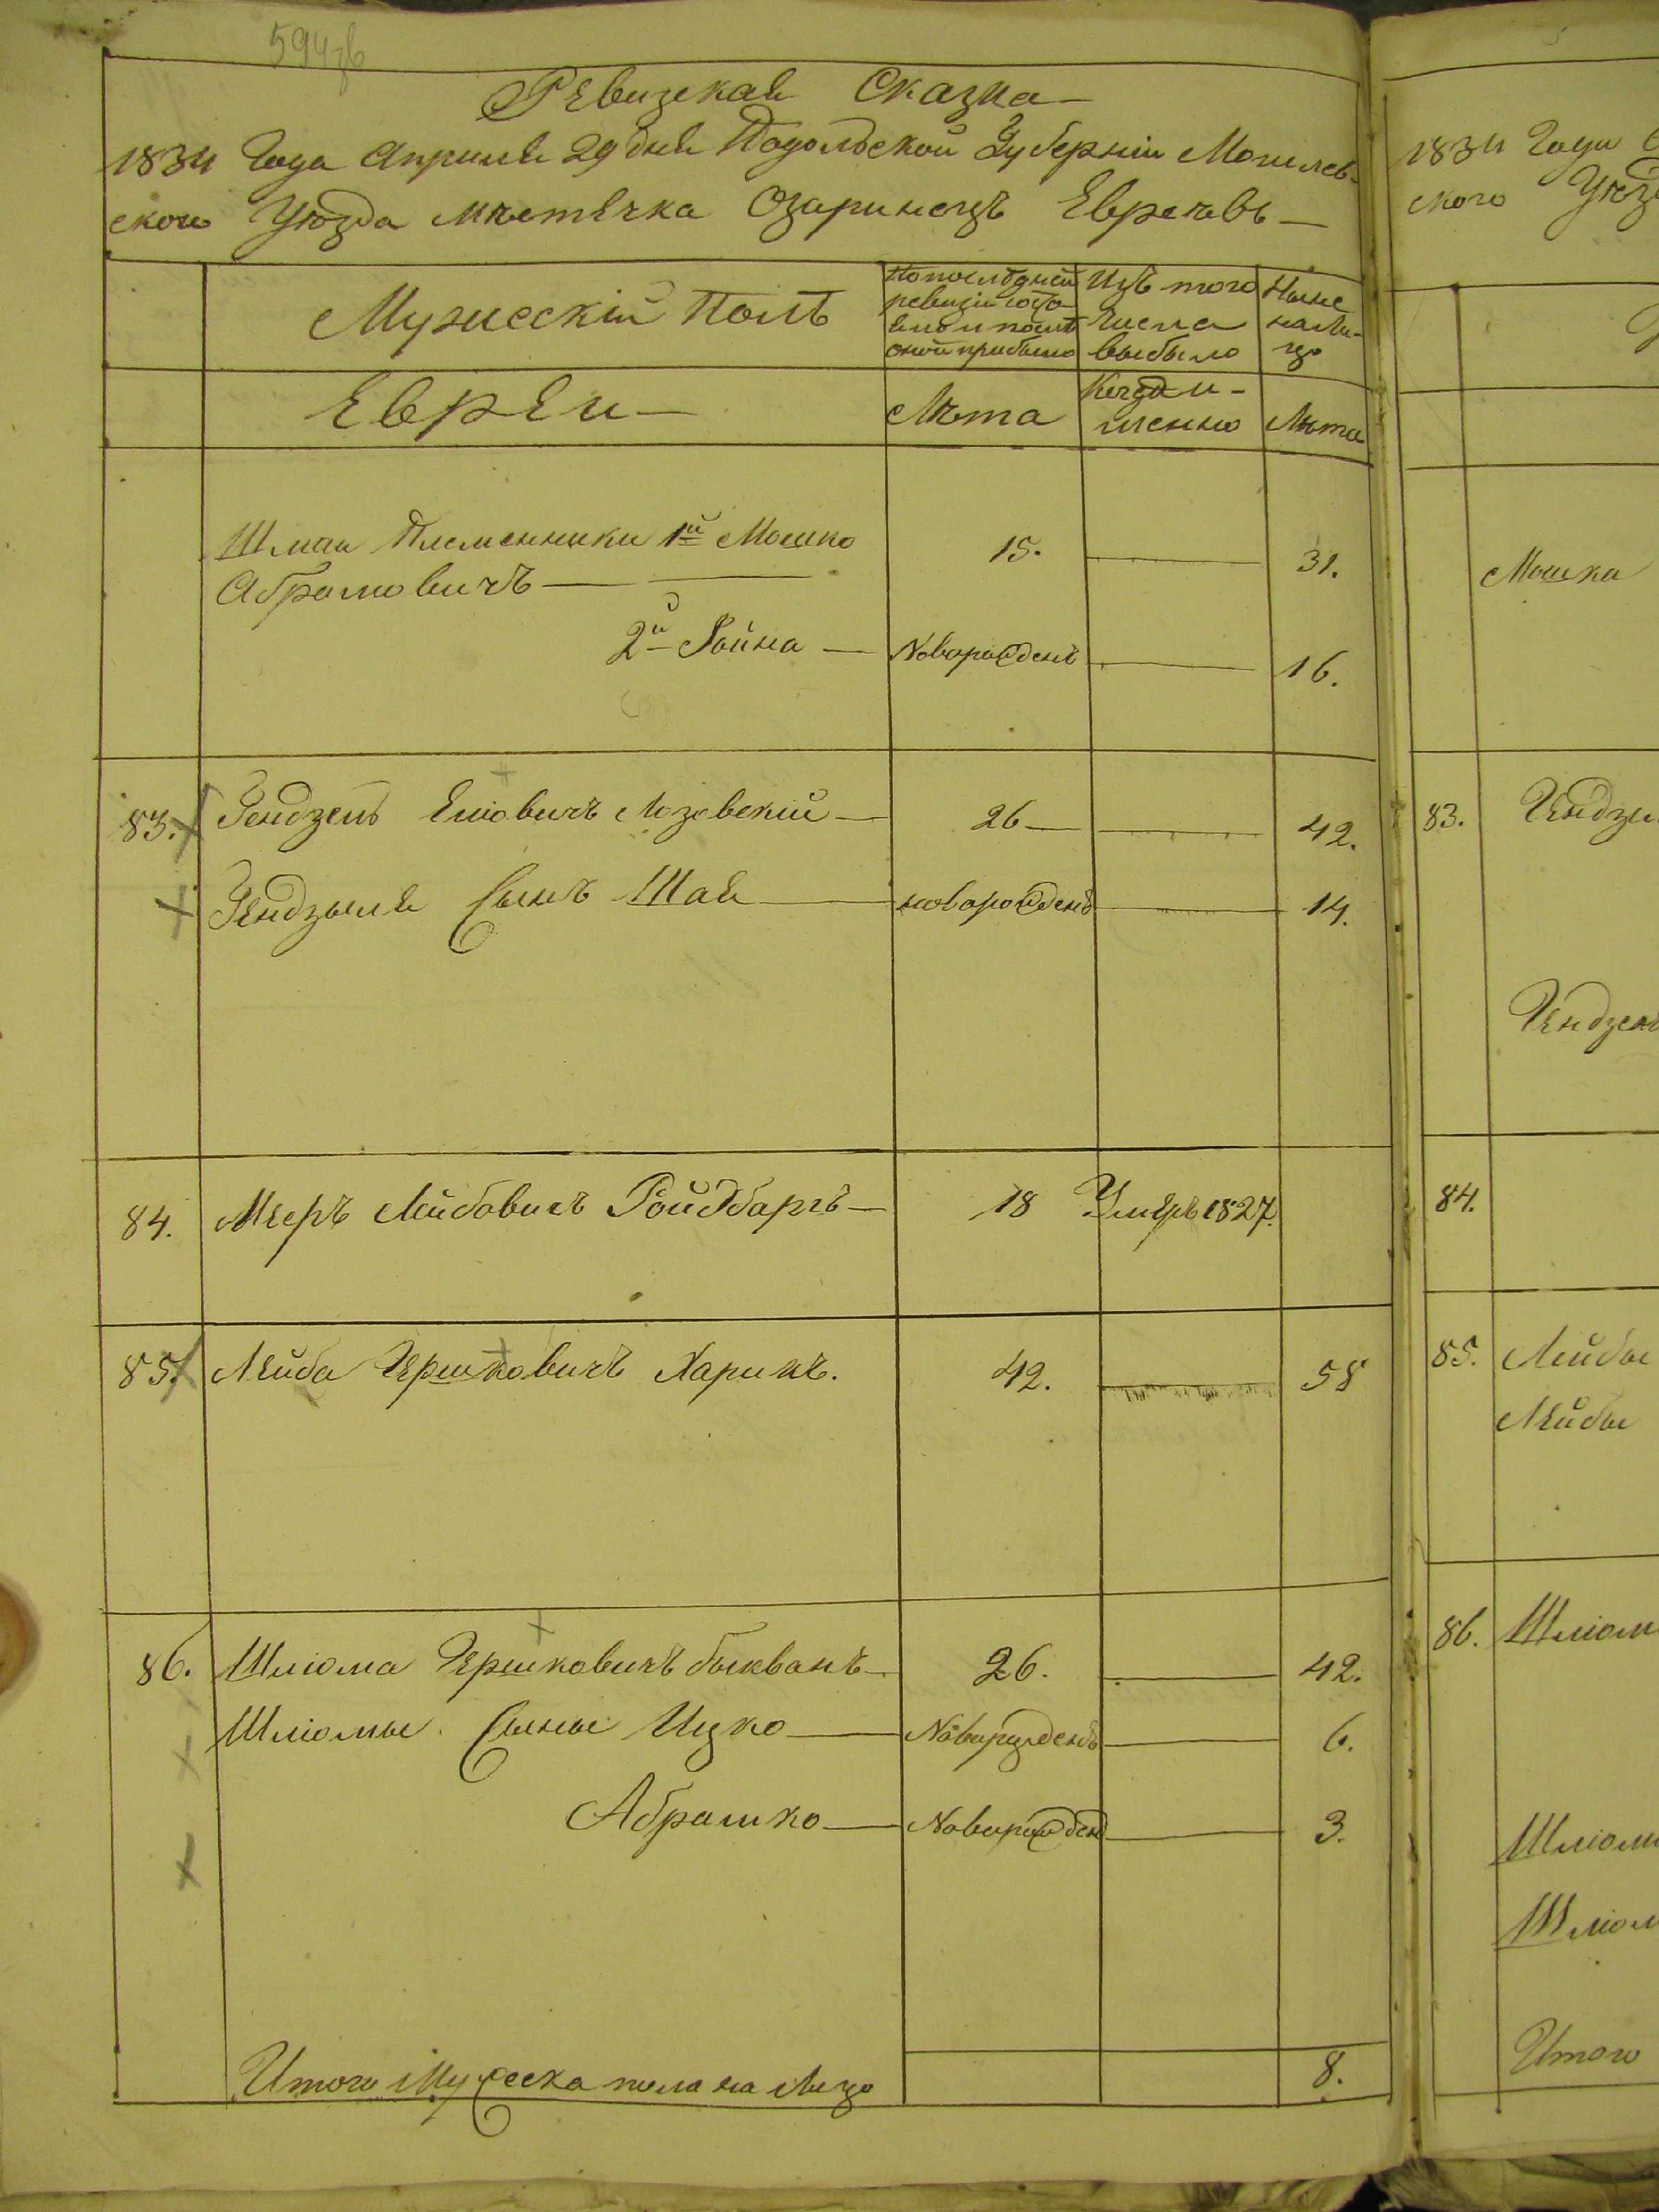 594
Ревизская Сказка
1834 Года Апреля 29 дня Подольской Губерніи Могилев-
ского Уѣзда мѣстечка Озаринецъ Евреевъ
Мужескій Полъ
По последней ревизіи состояло и послѣ оной прибыло
Изъ того числа выбыло
Ныне на ли-цо
Евреи
Лѣта
Когда и-менно
Лѣта
Шмаи Племенники 1й Мошко 15. 31.
Абрамовичъ
2й Файна Новорожденъ 16.
83. Гендзель Еліовичъ Лозовскій 26 42.
Гендзеля Сынъ Шая новорожденъ 14.
84. Мееръ Лейбовичъ Ройдбаргъ 18 Умеръ 1827.
85. Лейба Гершковичъ Харикъ. 42. 58
86. Шліома Гершковичъ Быкванъ 26. 42.
Шліомы Сыны Ицко Новорожденъ 6.
Абрашко Новорожден 3.
Итого Мужеска пола на лицо 8.
1834 Года
ского Уѣзд
Мошка
83. Гендзе
Гендзел
84.
85. Лейбы
Лейбы
86. Шліом
Шліом
Шліом
Итого